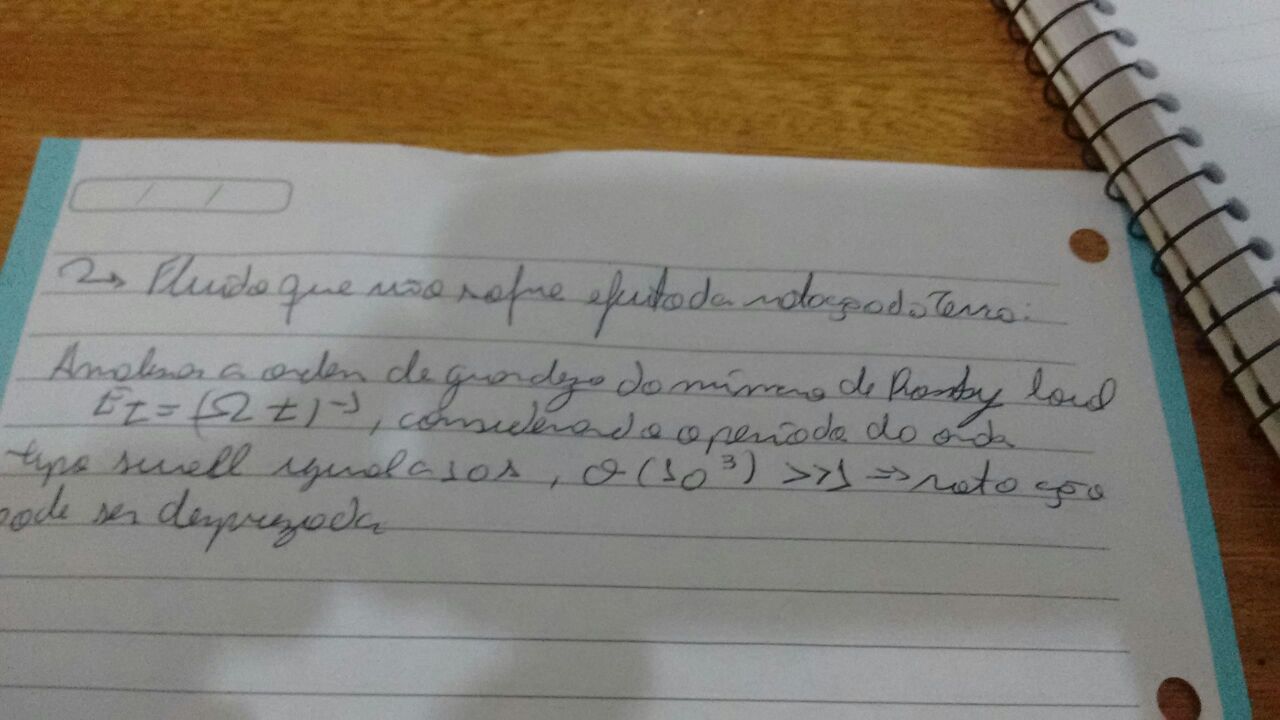 2→ Fluido que não sofre efeito da rotação da Terra:
Analisar a ordem de grandeza do número de Rossby local
Et = (Ω t)⁻¹, considerando o período da onda
tipo swell igual a 10s, O(10³) >>1 ⇒ rotação
pode ser desprezada